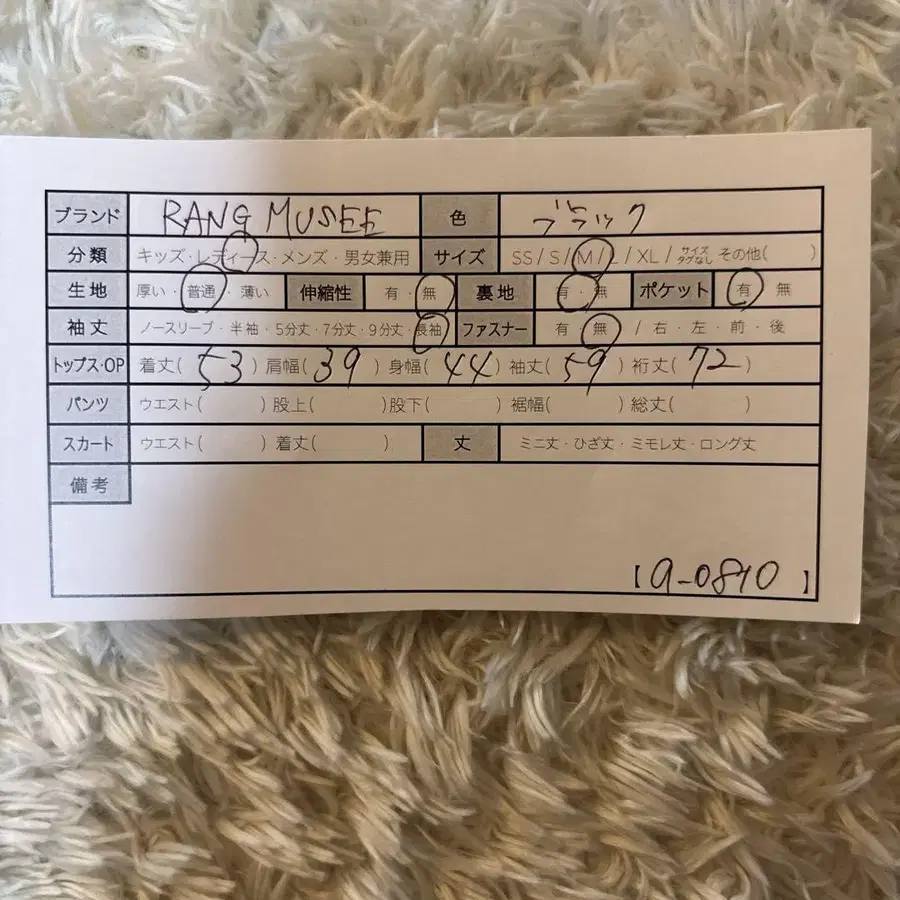 ブランド RANG MUSEE 色 ブラック
分類 キッズ・レディース・メンズ・男女兼用 サイズ SS/S/M/L/XL/サイズタグなし その他( )
生地 厚い・普通・薄い 伸縮性 有・無 裏地 有・無 ポケット 有 無
袖丈 ノースリーブ・半袖・5分丈・7分丈・9分丈・長袖 ファスナー 有 無 / 右・左・前・後
トップス・OP 着丈( 53 ) 肩幅( 39 ) 身幅( 44 ) 袖丈( 59 ) 裄丈( 72 )
パンツ ウエスト( ) 股上( ) 股下( ) 裾幅( ) 総丈( )
スカート ウエスト( ) 着丈( ) 丈 ミニ丈・ひざ丈・ミモレ丈・ロング丈
備考
【a-0810】